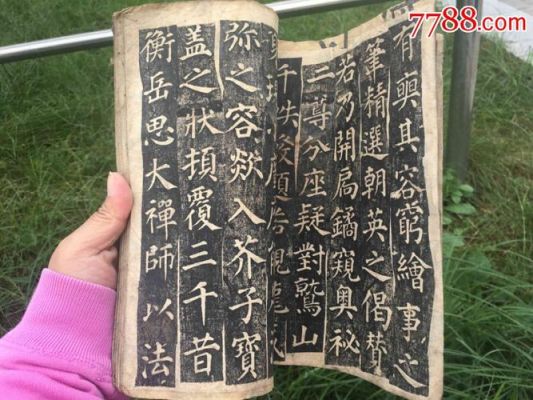 7788.com
有奭其容窮繪事之
筆精選朝英之偈賛
若乃開扃鐍窺奧祕
二尊分座疑對鷲山
千帙發題若觀龍
弥之容欻入芥子寶
盖之狀頓覆三千昔
衡岳思大禪師以法